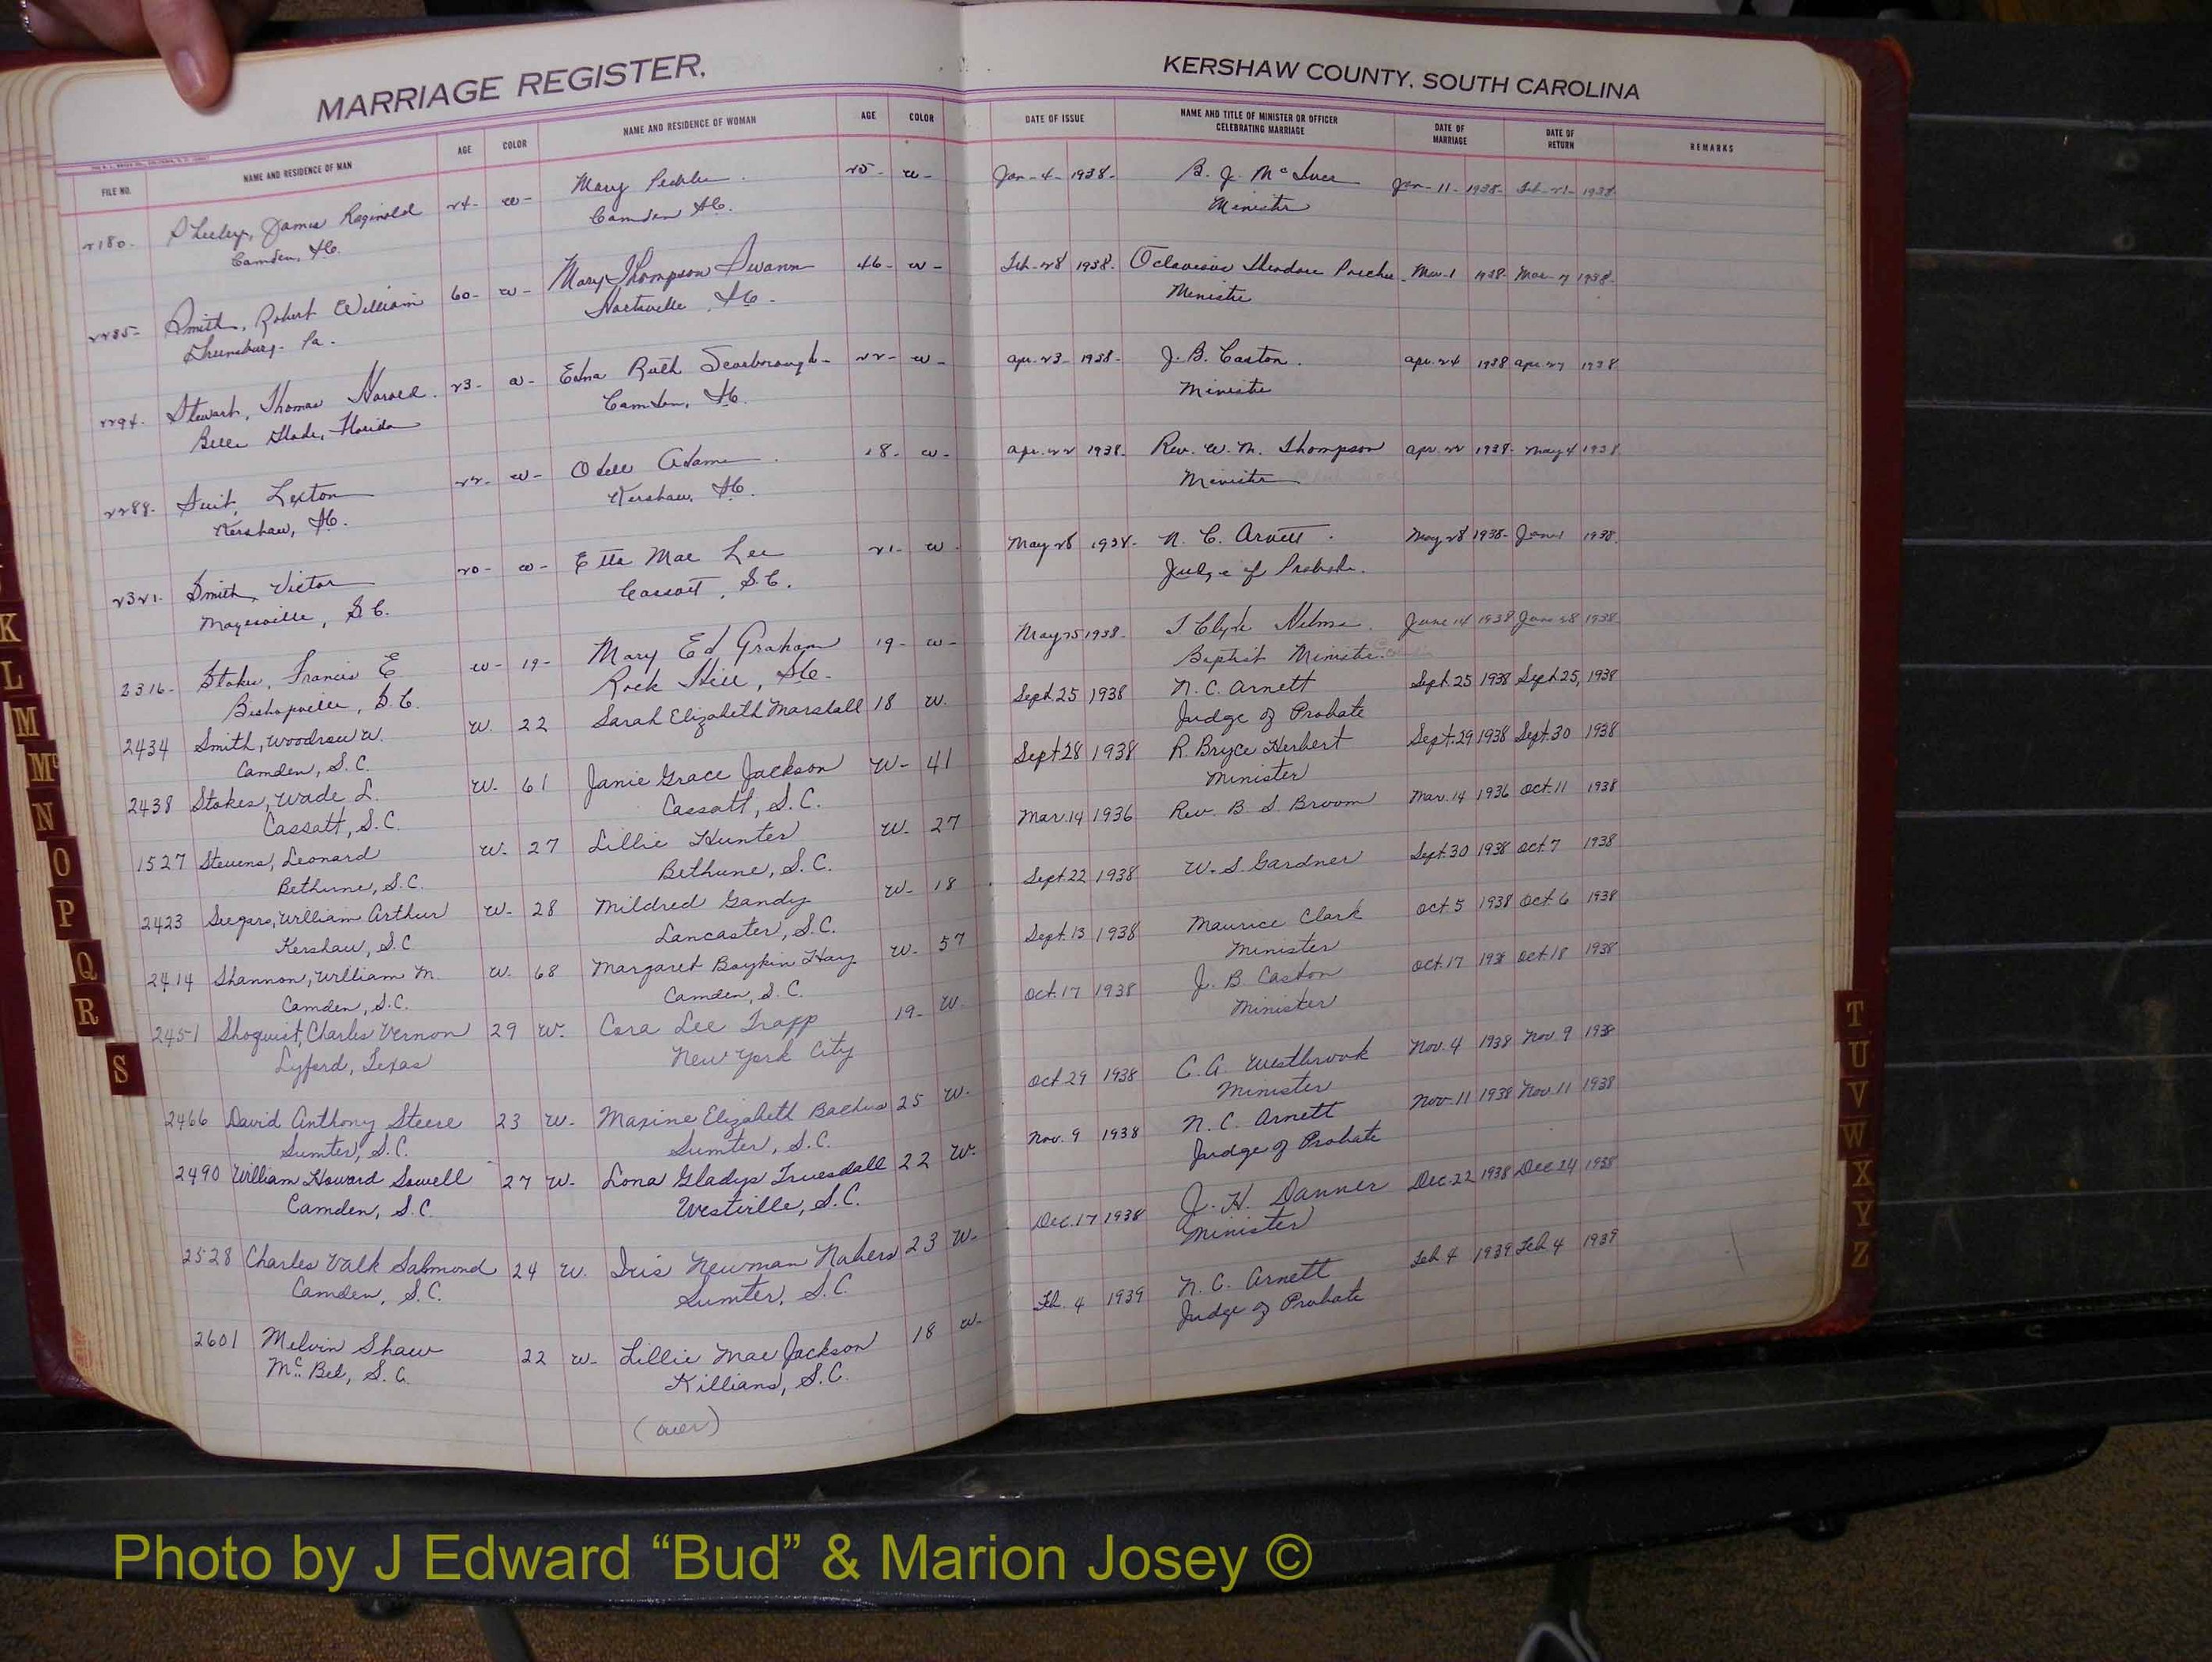 MARRIAGE REGISTER.
KERSHAW COUNTY, SOUTH CAROLINA
FILE NO. NAME AND RESIDENCE OF MAN AGE COLOR NAME AND RESIDENCE OF WOMAN AGE COLOR DATE OF ISSUE NAME AND TITLE OF MINISTER OR OFFICER CELEBRATING MARRIAGE DATE OF MARRIAGE DATE OF RETURN REMARKS
2180- Sheley, James Reginold 24- w- Mary 25- w- Jan-4-1938- B. J. McIver Jan-11-1938- Feb-21-1938-
Camden, SC. Camden SC. Minister
2235- Smith, Robert William 60- w- Mary Thompson Swann 46- w- Feb-28 1938- Theodore Porcher Mar-1 1938- Mar-7 1938-
Greensburg- Pa. Hartsville, SC- Minister
2294- Stewart, Thomas Harold 23- w- Edna Ruth Scarborough- 22- w- Apr. 23- 1938- J. B. Caston Apr. 24 1938 Apr. 27 1938
Belle Glade, Florida Camden, SC. Minister
2288- Suit, Lexton 22- w- Odell Adams 18- w- Apr. 22 1938- Rev. W. M. Thompson Apr. 22 1938- May 4 1938
Kershaw, SC. Kershaw, SC. Minister
2321- Smith, Victor 20- w- Etta Mae Lee 21- w- May 28 1938- N. C. Arnett May 28 1938- June 1 1938
Mayesville, S.C. Cassatt, S.C. Judge of Probate.
2316- Stokes, Francis E w- 19- Mary Ed Graham 19- w- May 25 1938- T. Clyde Helms June 14 1938 June 28 1938
Bishopville, S.C. Rock Hill, SC- Baptist Minister
2434 Smith, Woodrow W. W. 22 Sarah Elizabeth Marshall 18 W. Sept. 25 1938 N. C. Arnett Sept. 25 1938 Sept 25, 1938
Camden, S.C. Judge of Probate
2438 Stokes, Wade L. W. 61 Janie Grace Jackson W- 41 Sept 28 1938 R. Bryce Herbert Sept. 29 1938 Sept. 30 1938
Cassatt, S.C. Cassatt, S.C. Minister
1527 Stevens, Leonard W. 27 Lillie Hunter W. 27 Mar. 14 1936 Rev. B. S. Broom Mar. 14 1936 Oct. 11 1938
Bethune, S.C. Bethune, S.C.
2423 Seegars, William Arthur W. 28 Mildred Gandy W- 18 Sept. 22 1938 W. S. Gardner Sept. 30 1938 Oct. 7 1938
Kershaw, S.C Lancaster, S.C.
2414 Shannon, William M. W. 68 Margaret Boykin Hay W. 57 Sept. 13 1938 Maurice Clark Oct. 5 1938 Oct. 6 1938
Camden, S.C. Camden, S.C. Minister
2451 Shoquist, Charles Vernon 29 W. Cora Lee Trapp 19- W. Oct. 17 1938 J. B. Caston Oct. 17 1938 Oct. 18 1938
Lyford, Texas New York City Minister
2466 David Anthony Steese 23 W. Maxine Elizabeth Baehus 25 W. Oct 29 1938 C. A. Westbrook Nov. 4 1938 Nov. 9 1938
Sumter, S.C. Sumter, S.C. Minister
2490 William Howard Sowell 27 W- Lona Gladys Truesdall 22 W. Nov. 9 1938 N. C. Arnett Nov. 11 1938 Nov 11 1938
Camden, S.C. Westville, S.C. Judge of Probate
2528 Charles Valk Salmond 24 W. Iris Newman Nabers 23 W. Dec. 17 1938 J. H. Danner Dec. 22 1938 Dec 24 1938
Camden, S.C. Sumter, S.C. Minister
2601 Melvin Shaw 22 W- Lillie Mae Jackson 18 W- Feb. 4 1939 N. C. Arnett Feb 4 1939 Feb 4 1939
McBee, S.C. Killians, S.C. Judge of Probate
(over)
K
L
M
Mc
N
O
P
Q
R
S
T
U
V
W
X
Y
Z
Photo by J Edward “Bud” & Marion Josey ©